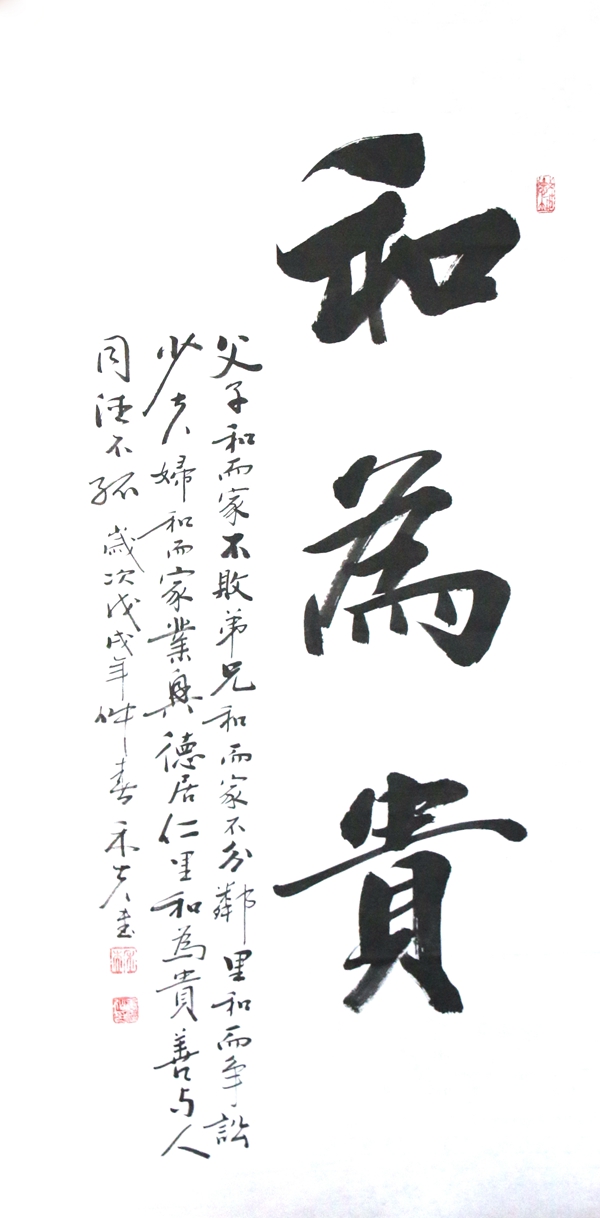 和為貴
父子和而家不敗弟兄和而家不分鄰里和而争訟
少夫婦和而家業興德居仁里和為貴善与人
同德不孤 歲次戊戌年仲春禾夫書